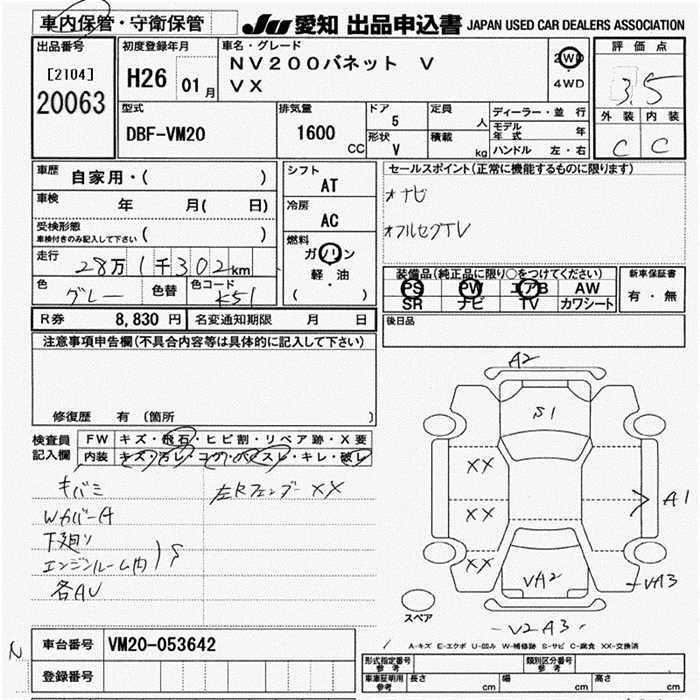 車内保管・守衛保管
JU 愛知 出品申込書 JAPAN USED CAR DEALERS ASSOCIATION
出品番号
[2104]
20063
初度登録年月
H26 01月
車名・グレード
NV200バネット V
VX
2WD
4WD
評価点
3.5
外装 内装
C C
型式
DBF-VM20
排気量
1600 CC
ドア
5
形状
V
定員
人
積載
kg
ディーラー・並行
モデル年式 年
ハンドル 左・右
車歴 自家用・( )
車検 年 月( 日)
受検形態
車検付きのみ記入して下さい ( )
走行 28万1千302km
色 グレー 色替 色コード K51
シフト
AT
冷房
AC
燃料
ガソリン
軽・油
( )
セールスポイント(正常に機能するものに限ります)
オナビ
オフルセグTV
装備品(純正品に限り○をつけてください)
PS PW エアB AW
SR ナビ TV カワシート
新車保証書
有・無
後日品
R券 8,830 円 名変通知期限 月 日
注意事項申告欄(不具合内容等は具体的に記入して下さい)
修復歴 有 (箇所 )
検査員記入欄
FW キズ・飛石・ヒビ割・リペア跡・X要
内装 キズ・汚レ・コゲ・ハズレ・キレ・破レ
キバミ
左Rフェンダー XX
Wカバー A
下廻り
エンジンルーム内 S
各AU
A2
S1
XX
XX
XX
A1
VA2
VA3
V2A3
スペア
A-キズ E-エクボ U-凹み W-補修跡 S-サビ C-腐食 XX-交換済
N
車台番号 VM20-053642
登録番号
形式指定番号 参考
類別区分番号 参考
車庫証明用 参考
長さ cm 幅 cm 高さ cm